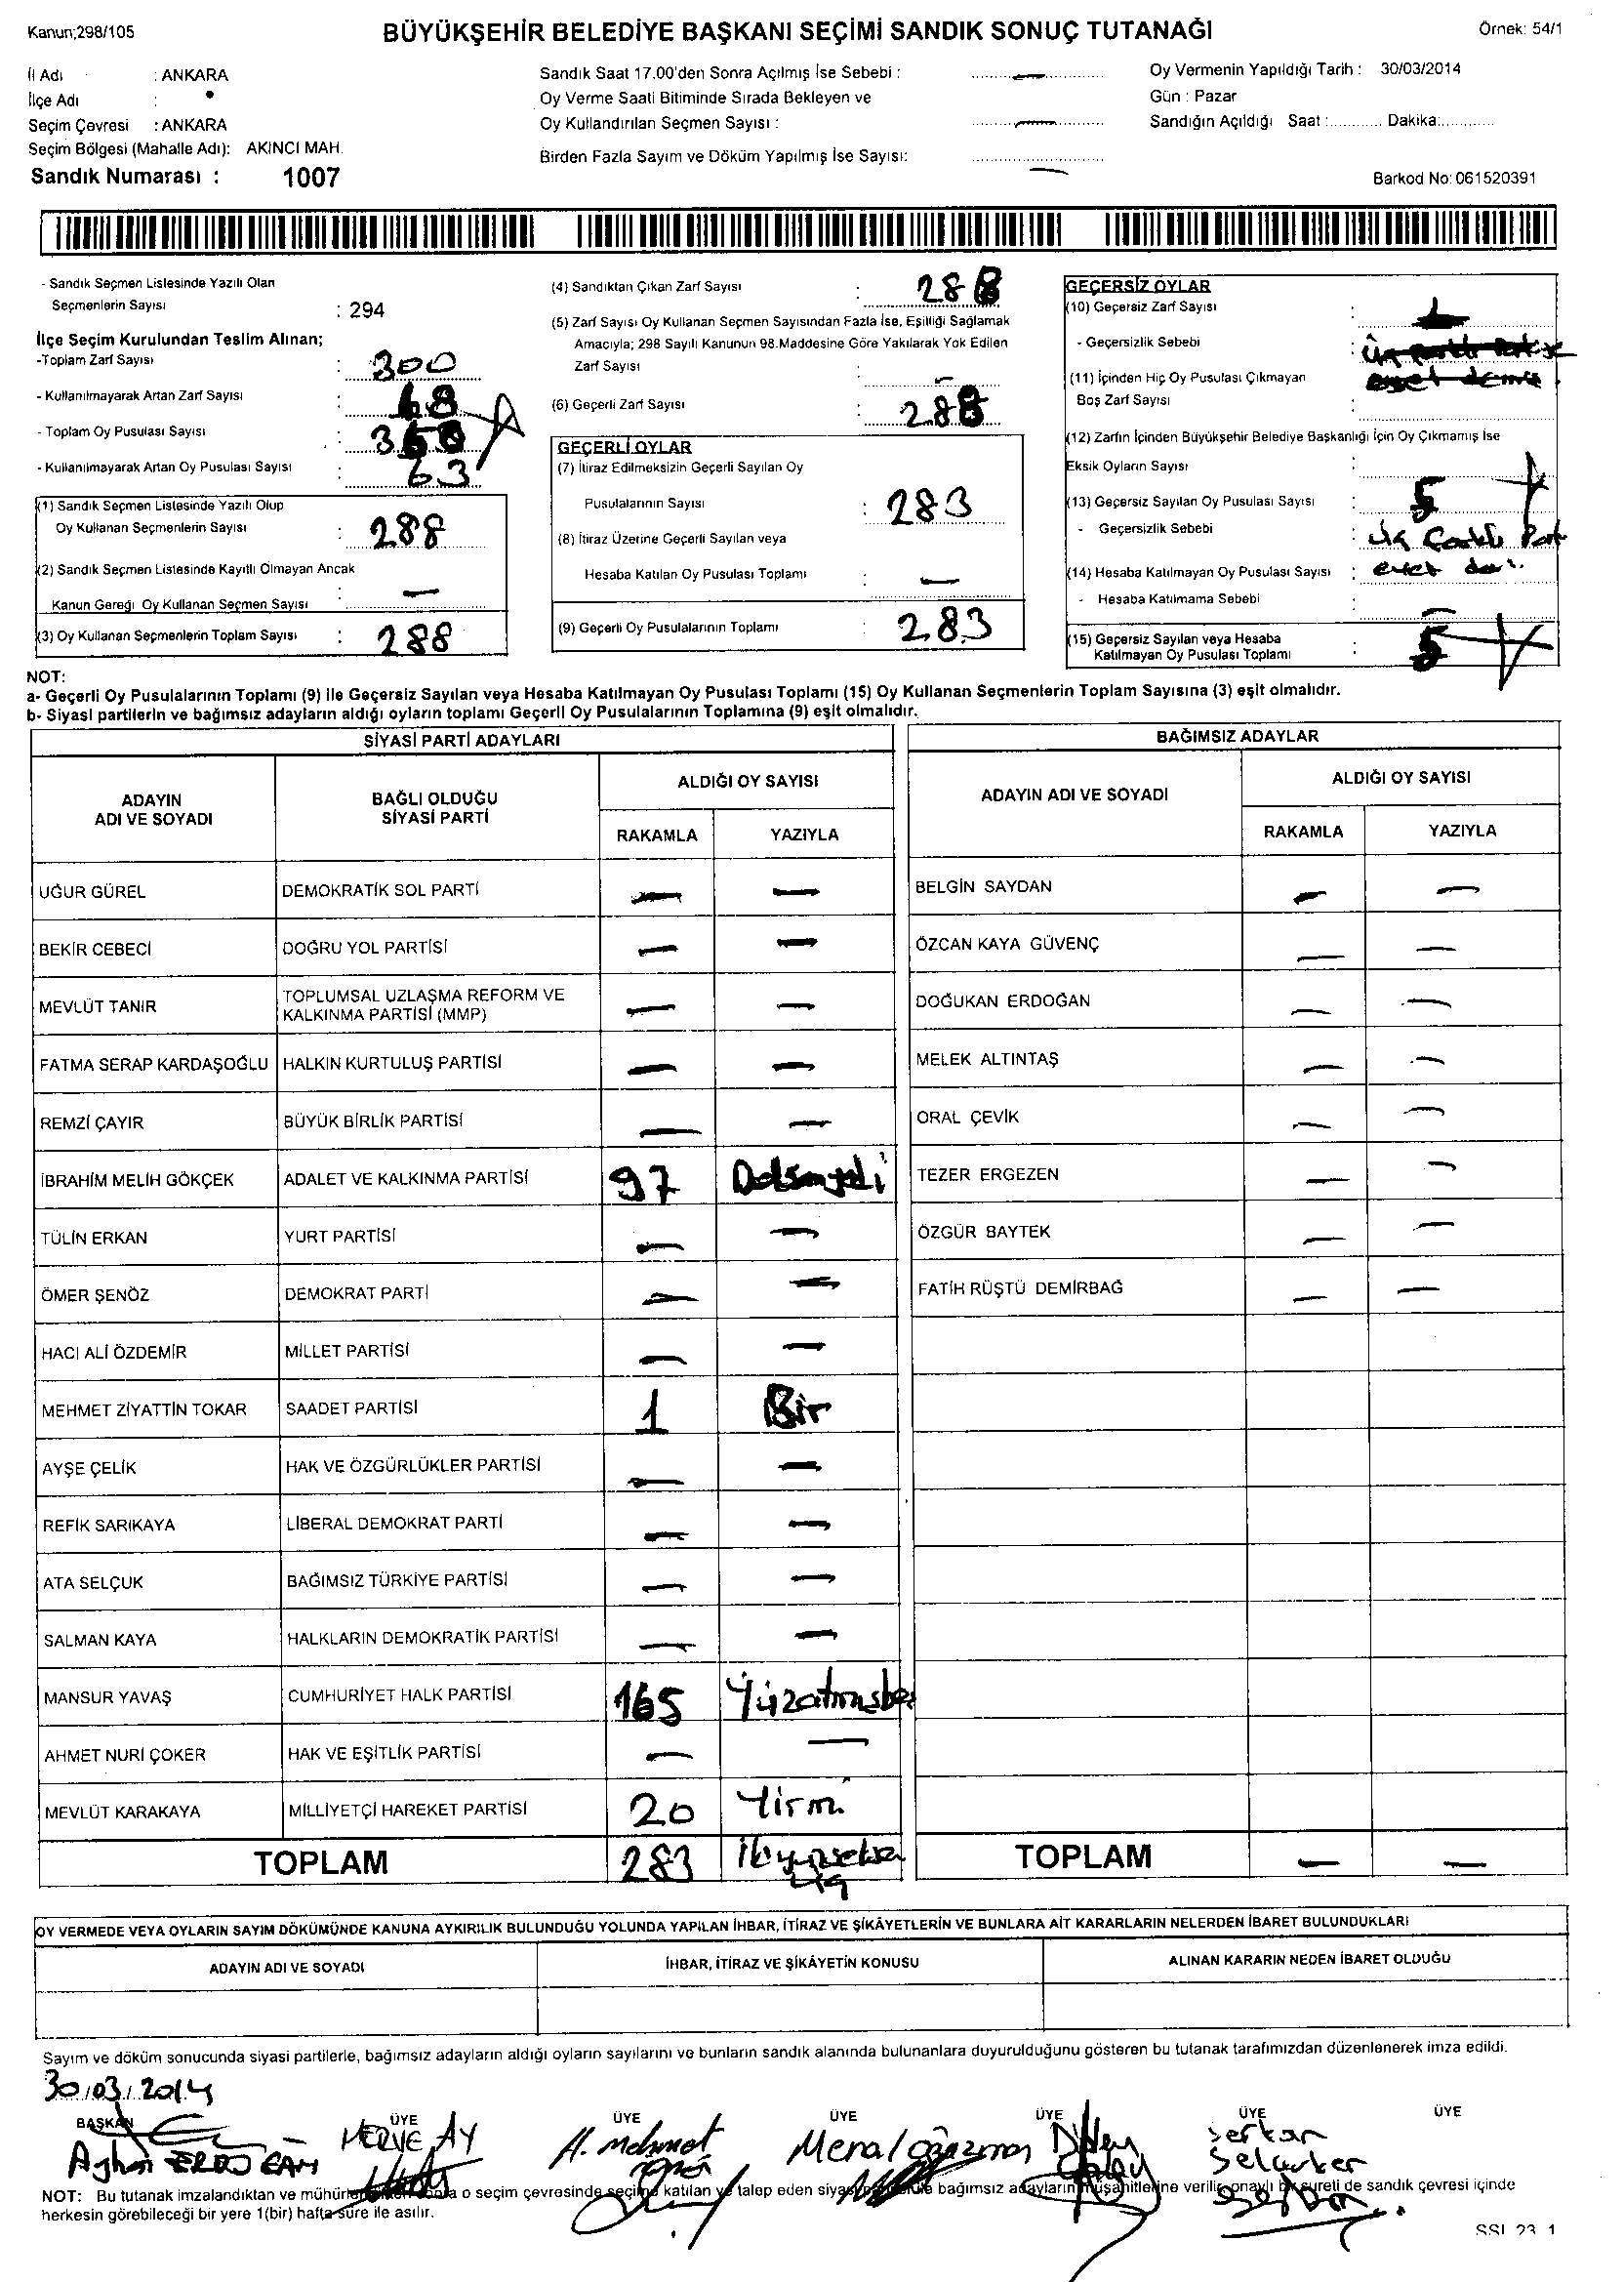 Kanun;298/105
BÜYÜKŞEHİR BELEDİYE BAŞKANI SEÇİMİ SANDIK SONUÇ TUTANAĞI
Örnek: 54/1
İl Adı : ANKARA
İlçe Adı :
Seçim Çevresi : ANKARA
Seçim Bölgesi (Mahalle Adı): AKINCI MAH.
Sandık Numarası : 1007
Sandık Saat 17.00'den Sonra Açılmış İse Sebebi : —
Oy Verme Saati Bitiminde Sırada Bekleyen ve
Oy Kullandırılan Seçmen Sayısı : —
Birden Fazla Sayım ve Döküm Yapılmış İse Sayısı: —
Oy Vermenin Yapıldığı Tarih : 30/03/2014
Gün : Pazar
Sandığın Açıldığı Saat :............ Dakika:............
Barkod No: 061520391
- Sandık Seçmen Listesinde Yazılı Olan
Seçmenlerin Sayısı : 294
İlçe Seçim Kurulundan Teslim Alınan;
-Toplam Zarf Sayısı : 300
- Kullanılmayarak Artan Zarf Sayısı :
- Toplam Oy Pusulası Sayısı :
- Kullanılmayarak Artan Oy Pusulası Sayısı : 63
(1) Sandık Seçmen Listesinde Yazılı Olup
Oy Kullanan Seçmenlerin Sayısı : 288
(2) Sandık Seçmen Listesinde Kayıtlı Olmayan Ancak
Kanun Gereği Oy Kullanan Seçmen Sayısı : —
(3) Oy Kullanan Seçmenlerin Toplam Sayısı : 288
(4) Sandıktan Çıkan Zarf Sayısı : 288
(5) Zarf Sayısı Oy Kullanan Seçmen Sayısından Fazla İse, Eşitliği Sağlamak
Amacıyla; 298 Sayılı Kanunun 98.Maddesine Göre Yakılarak Yok Edilen
Zarf Sayısı : —
(6) Geçerli Zarf Sayısı : 288
GEÇERLİ OYLAR
(7) İtiraz Edilmeksizin Geçerli Sayılan Oy
Pusulalarının Sayısı : 283
(8) İtiraz Üzerine Geçerli Sayılan veya
Hesaba Katılan Oy Pusulası Toplamı : —
(9) Geçerli Oy Pusulalarının Toplamı : 283
GEÇERSİZ OYLAR
(10) Geçersiz Zarf Sayısı :
- Geçersizlik Sebebi :
(11) İçinden Hiç Oy Pusulası Çıkmayan
Boş Zarf Sayısı :
(12) Zarfın İçinden Büyükşehir Belediye Başkanlığı İçin Oy Çıkmamış İse
Eksik Oyların Sayısı :
(13) Geçersiz Sayılan Oy Pusulası Sayısı : 5
- Geçersizlik Sebebi : üç
(14) Hesaba Katılmayan Oy Pusulası Sayısı : evet
- Hesaba Katılmama Sebebi :
(15) Geçersiz Sayılan veya Hesaba
Katılmayan Oy Pusulası Toplamı : 5
NOT:
a- Geçerli Oy Pusulalarının Toplamı (9) ile Geçersiz Sayılan veya Hesaba Katılmayan Oy Pusulası Toplamı (15) Oy Kullanan Seçmenlerin Toplam Sayısına (3) eşit olmalıdır.
b- Siyasi partilerin ve bağımsız adayların aldığı oyların toplamı Geçerli Oy Pusulalarının Toplamına (9) eşit olmalıdır.
SİYASİ PARTİ ADAYLARI
ADAYIN ADI VE SOYADI BAĞLI OLDUĞU SİYASİ PARTİ ALDIĞI OY SAYISI
RAKAMLA YAZIYLA
UĞUR GÜREL DEMOKRATİK SOL PARTİ — —
BEKİR CEBECİ DOĞRU YOL PARTİSİ — —
MEVLÜT TANIR TOPLUMSAL UZLAŞMA REFORM VE KALKINMA PARTİSİ (MMP) — —
FATMA SERAP KARDAŞOĞLU HALKIN KURTULUŞ PARTİSİ — —
REMZİ ÇAYIR BÜYÜK BİRLİK PARTİSİ — —
İBRAHİM MELİH GÖKÇEK ADALET VE KALKINMA PARTİSİ 97 Doksanyedi
TÜLİN ERKAN YURT PARTİSİ — —
ÖMER ŞENÖZ DEMOKRAT PARTİ — —
HACI ALİ ÖZDEMİR MİLLET PARTİSİ — —
MEHMET ZİYATTİN TOKAR SAADET PARTİSİ 1 Bir
AYŞE ÇELİK HAK VE ÖZGÜRLÜKLER PARTİSİ — —
REFİK SARIKAYA LİBERAL DEMOKRAT PARTİ — —
ATA SELÇUK BAĞIMSIZ TÜRKİYE PARTİSİ — —
SALMAN KAYA HALKLARIN DEMOKRATİK PARTİSİ — —
MANSUR YAVAŞ CUMHURİYET HALK PARTİSİ 165 Yüzatmışbeş
AHMET NURİ ÇOKER HAK VE EŞİTLİK PARTİSİ — —
MEVLÜT KARAKAYA MİLLİYETÇİ HAREKET PARTİSİ 20 Yirmi
TOPLAM 283 ikiyüzseksen üç
BAĞIMSIZ ADAYLAR
ADAYIN ADI VE SOYADI ALDIĞI OY SAYISI
RAKAMLA YAZIYLA
BELGİN SAYDAN — —
ÖZCAN KAYA GÜVENÇ — —
DOĞUKAN ERDOĞAN — —
MELEK ALTINTAŞ — —
ORAL ÇEVİK — —
TEZER ERGEZEN — —
ÖZGÜR BAYTEK — —
FATİH RÜŞTÜ DEMİRBAĞ — —
TOPLAM — —
OY VERMEDE VEYA OYLARIN SAYIM DÖKÜMÜNDE KANUNA AYKIRILIK BULUNDUĞU YOLUNDA YAPILAN İHBAR, İTİRAZ VE ŞİKÂYETLERİN VE BUNLARA AİT KARARLARIN NELERDEN İBARET BULUNDUKLARI
ADAYIN ADI VE SOYADI İHBAR, İTİRAZ VE ŞİKÂYETİN KONUSU ALINAN KARARIN NEDEN İBARET OLDUĞU
Sayım ve döküm sonucunda siyasi partilerle, bağımsız adayların aldığı oyların sayılarını ve bunların sandık alanında bulunanlara duyurulduğunu gösteren bu tutanak tarafımızdan düzenlenerek imza edildi.
30/03/2014
BAŞKAN ÜYE ÜYE ÜYE ÜYE ÜYE ÜYE
Ayhan MERVE AY A. Mehmet Meral Serkan
NOT: Bu tutanak imzalandıktan ve mühürlendikten sonra o seçim çevresinde seçime katılan ve talep eden siyasi partilerle bağımsız adayların müşahitlerine verilir, onaylı bir sureti de sandık çevresi içinde
herkesin görebileceği bir yere 1(bir) hafta süre ile asılır.